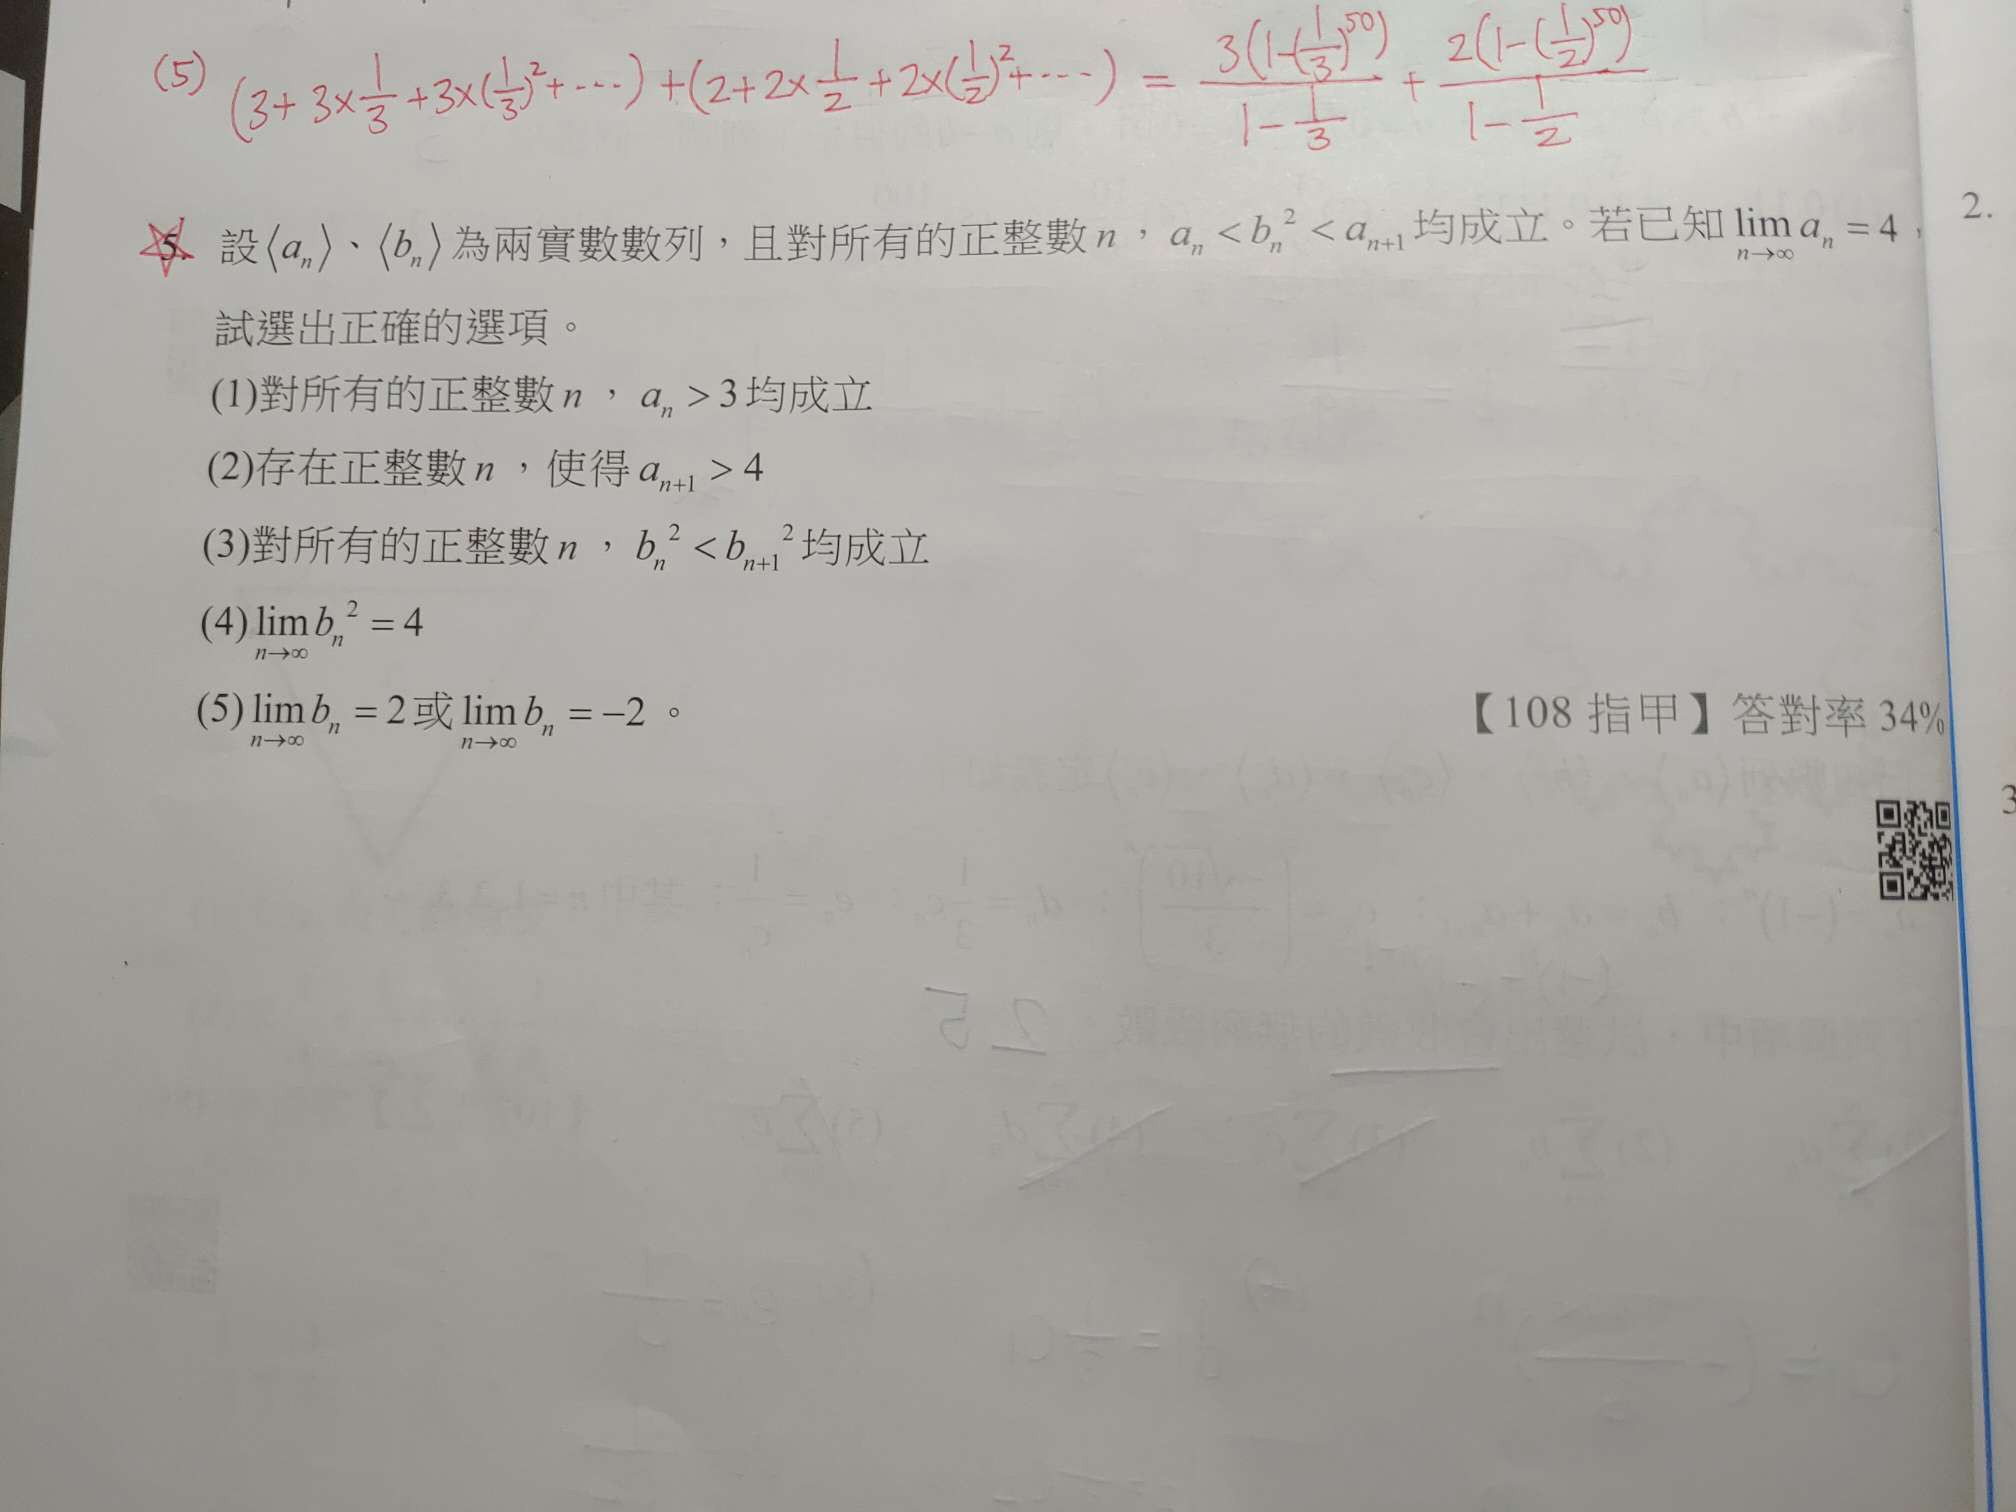 (5) (3+3×1/3+3×(1/3)²+⋯)+(2+2×1/2+2×(1/2)²+⋯) = 3(1-(1/3)⁵⁰)/(1-1/3) + 2(1-(1/2)⁵⁰)/(1-1/2)
5. 設⟨aₙ⟩、⟨bₙ⟩為兩實數數列，且對所有的正整數 n，aₙ < bₙ² < aₙ₊₁ 均成立。若已知 lim_{n→∞} aₙ = 4，
試選出正確的選項。
(1)對所有的正整數 n，aₙ > 3 均成立
(2)存在正整數 n，使得 aₙ₊₁ > 4
(3)對所有的正整數 n，bₙ² < bₙ₊₁² 均成立
(4) lim_{n→∞} bₙ² = 4
(5) lim_{n→∞} bₙ = 2 或 lim_{n→∞} bₙ = −2。
【108 指甲】答對率 34%
2.
3